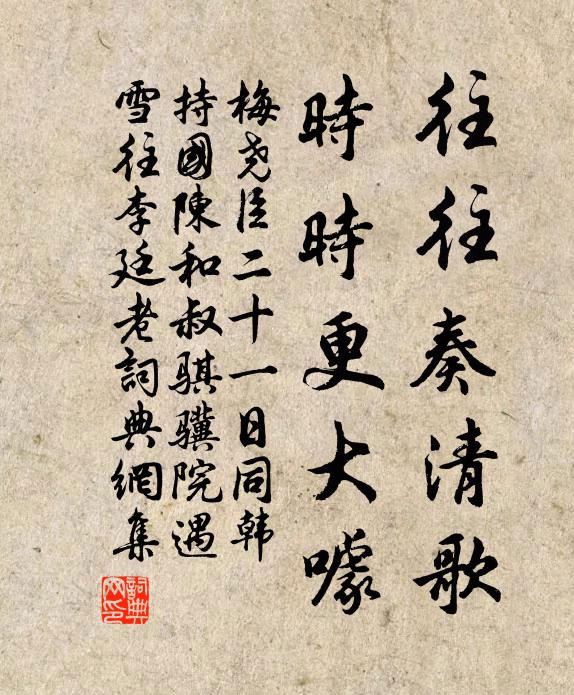 往往奏清歌
時時更大噱
梅尧臣二十一日同韩
持國陳和叔骐骥院遇
雪往李廷老詞典網集
詞典网印